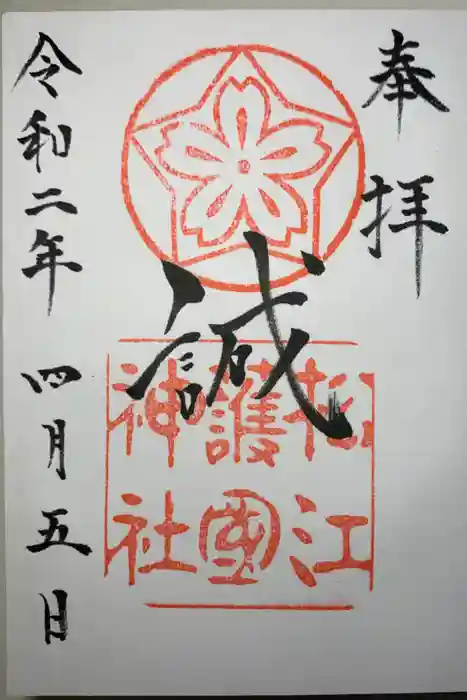 奉拝
誠
松江
護國
神社
令和二年 四月五日